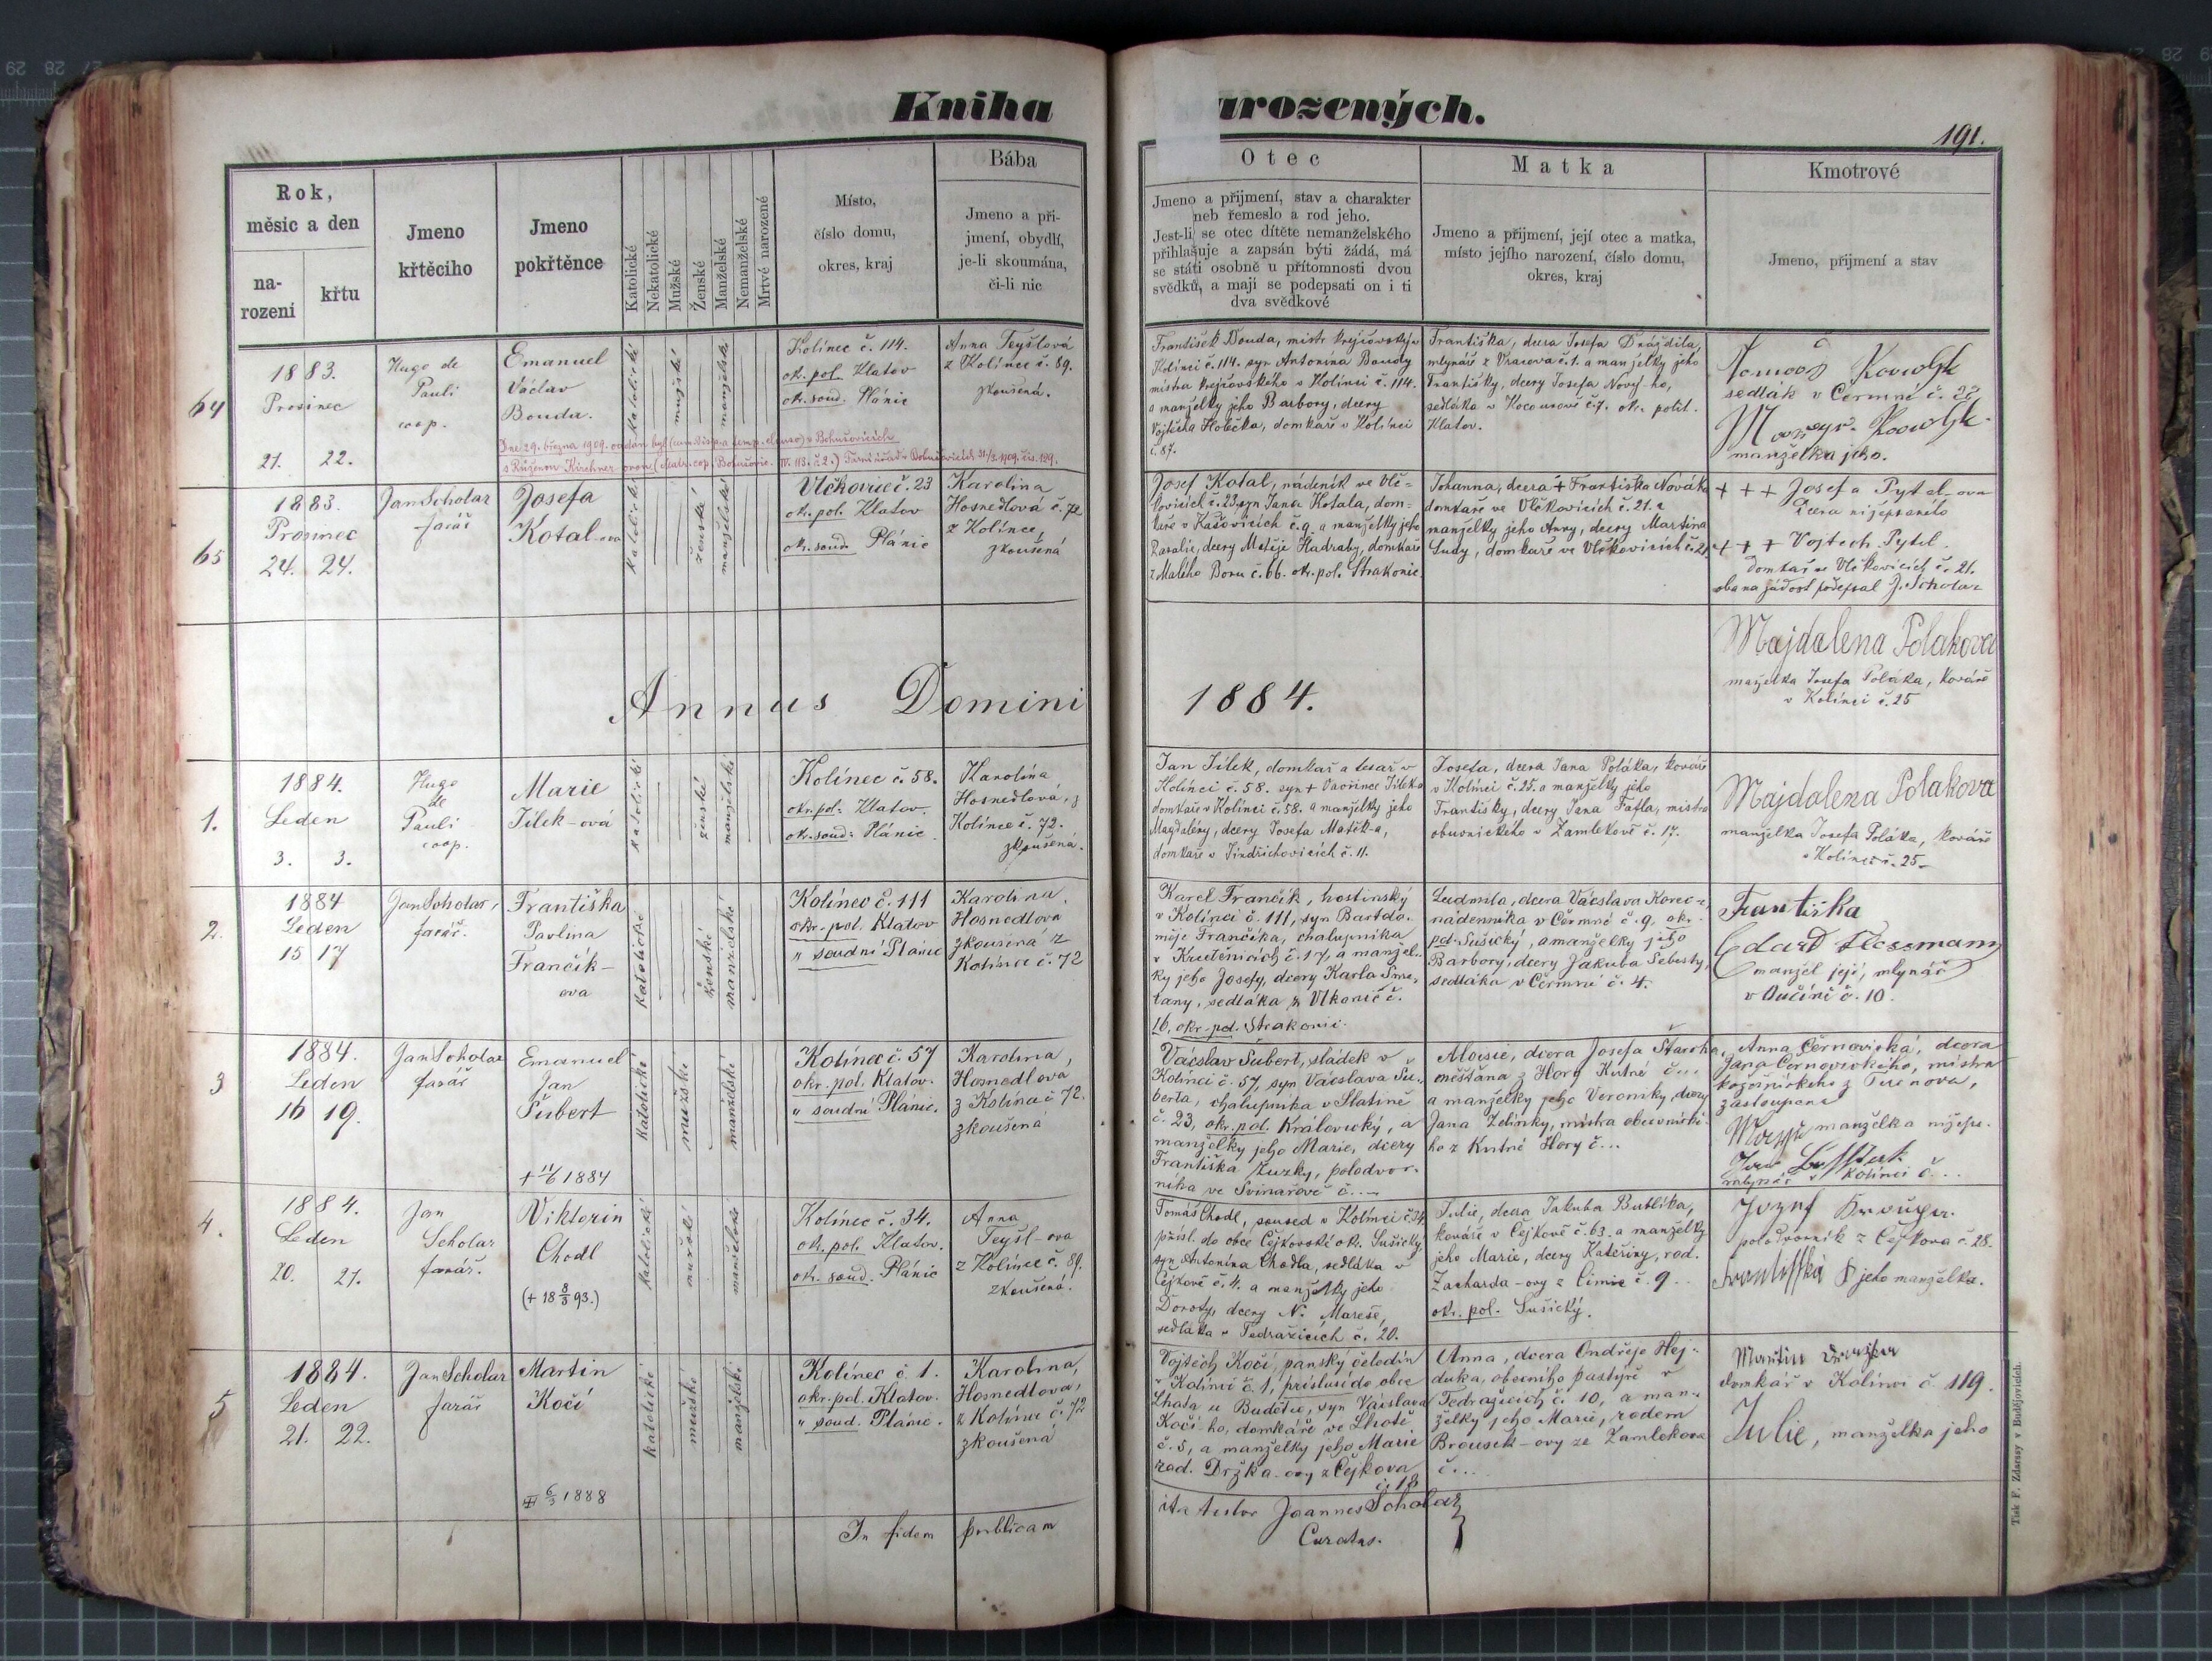 Kniha
narozených.
191.
Rok,
měsíc a den
na-
rození
křtu
Jmeno
křtěcího
Jmeno
pokřtěnce
Katolické
Nekatolické
Mužské
Ženské
Manželské
Nemanželské
Mrtvé narozené
Místo,
číslo domu,
okres, kraj
Bába
Jmeno a při-
jmení, obydlí,
je-li skoumána,
či-li nic
Otec
Jmeno a přijmení, stav a charakter
neb řemeslo a rod jeho.
Jest-li se otec dítěte nemanželského
přihlašuje a zapsán býti žádá, má
se státi osobně u přítomnosti dvou
svědků, a mají se podepsati on i ti
dva svědkové
Matka
Jmeno a přijmení, její otec a matka,
místo jejího narození, číslo domu,
okres, kraj
Kmotrové
Jmeno, přijmení a stav
64
1883.
Prosinec
21. 22.
Hugo de
Pauli
coop.
Emanuel
Václav
Bouda.
katolické
mužské
manželské
Kolínec č. 114.
ok. pol. Klatov
ok. soud. Plánic
Anna Teyšlová
z Kolínce č. 89.
zkoušená.
František Bouda, mistr krejčovský v
Kolínci č. 114. syn Antonína Boudy
mistra krejčovského v Kolínci č. 114.
a manželky jeho Barbory, dcery
Vojtěcha Holečka, domkáře v Kolínci
č. 87.
Františka, dcera Josefa Drázdila,
mlynáře z Vracova č. 1. a manželky jeho
Františky, dcery Josefa Nový-ho,
sedláka v Kocourově č. 7. ok. polit.
Klatov.
sedlák v Čermné č. 22
manželka jeho.
Dne 29. března 1909. oddán byl v Bohušovicích
s Růženou Kirchner-ovou
65
1883.
Prosinec
24. 24.
Jan Scholar
farář
Josefa
Kotal-ova
katolické
ženské
manželské
Vlčkovice č. 23
ok. pol. Klatov
ok. soud. Plánic
Karolina
Hosnedlová č. 72
z Kolínce,
zkoušená
Josef Kotal, nádeník ve Vlč-
kovicích č. 23. syn Jana Kotala, dom-
káře v Kašovicích č. 9. a manželky jeho
Rosalie, dcery Matěje Hadraby, domkáře
z Malého Boru č. 66. ok. pol. Strakonic.
Johanna, dcera + Františka Nováka
domkáře ve Vlčkovicích č. 21. a
manželky jeho Anny, dcery Martina
Ludy, domkáře ve Vlčkovicích č. 21
+ + + Josefa Pytel-ova
dcera nížepsaného
+ + + Vojtěch Pytel.
domkář ve Vlčkovicích č. 21.
oba na žádost podepsal J. Scholar
Annus Domini
1884.
Majdalena Polakova
manželka Josefa Poláka, kováře
v Kolínci č. 25
1.
1884.
Leden
3. 3.
Hugo
de
Pauli
coop.
Marie
Jílek-ová
katolické
ženské
manželské
Kolínec č. 58.
ok. pol. Klatov.
ok. soud: Plánic.
Karolína
Hosnedlová, z
Kolínce č. 72.
zkoušená.
Jan Jílek, domkař a tesař v
Kolínci č. 58. syn + Vavřince Jílka
domkáře v Kolínci č. 58. a manželky jeho
Magdalény, dcery Josefa Matěk-a,
domkaře v Jindřichovicích č. 11.
Josefa, dcera Jana Poláka, kováře
v Kolínci č. 25. a manželky jeho
Františky, dcery Jana Fatla, mistra
obuvnického v Zamlekově č. 17.
Majdalena Polakova
manželka Josefa Poláka, kováře
v Kolínci č. 25.
2.
1884
Leden
15 17
Jan Scholar,
farář.
Františka
Pavlina
Frančík-
ova
katolické
ženské
manželské
Kolínec č. 111
okr. pol. Klatov
" soudní Plánic
Karolina
Hosnedlova
zkoušená z
Kolince č. 72
Karel Frančík, hostinský
v Kolínci č. 111, syn Bartolo-
měje Frančíka, chalupníka
v Kvaténicích č. 17, a manžel-
ky jeho Josefy, dcery Karla Sme-
tany, sedláka z Vlkonic č.
16. okr. pol. Strakonic.
Ludmila, dcera Václava Korec-a,
nádenníka v Čermné č. 9, okr.
pol. Sušický, a manželky jeho
Barbory, dcery Jakuba Šebesty,
sedláka v Čermné č. 4.
Františka
manžel její, mlynář
v Aučíně č. 10.
3
1884.
Leden
16 19.
Jan Scholar
farář
Emanuel
Jan
Šubert
+ 11/6 1884
katolické
mužské
manželské
Kolínec č. 57
okr. pol. Klatov.
" soudní Plánic.
Karolina,
Hosnedlova
z Kolínce č 72.
zkoušená
Václav Šubert, sládek v
Kolínci č. 57, syn Václava Šu-
berta, chalupníka v Slatině
č. 23, okr. pol. Královický, a
manželky jeho Marie, dcery
Františka Zuzky, polodvor-
níka ve Svinařově č. . .
Aloisie, dcera Josefa Štarcha,
měšťana z Hory Kutné č...
a manželky jeho Veroniky, dcery
Jana Zelinky, mistra obuvnické-
ho z Kutné Hory č...
Anna Černovická, dcera
Jana Černovického, mistra
zastoupena
manželka nížeps.
mlynář v Kolínci č...
4.
1884.
Leden
20. 21.
Jan
Scholar
farář.
Viktorin
Chodl
(+ 18 8/3 93.)
katolické
mužské
manželské
Kolínec č. 34.
ok. pol. Klatov.
ok. soud. Plánic
Anna
Teyšl-ova
z Kolínce č. 89.
zkoušená.
Tomáš Chodl, soused v Kolínci č. 34.
přísl. do obce Čejkovské ok. Sušický,
syn Antonína Chodla, sedláka v
Čejkově č. 4. a manželky jeho
Doroty, dcery N. Mareše,
sedláka v Tedražicích č. 20.
Julie, dcera Jakuba Bublíka,
kováře v Čejkově č. 63. a manželky
jeho Marie, dcery Kateřiny, rod.
Zacharda-ovy z Čimic č. 9..
okr. pol. Sušický.
polodvorník z Čejkova č. 28.
jeho manželka.
5
1884.
Leden
21. 22.
Jan Scholar
farář
Martin
Kočí
6/3 1888
katolické
mužské
manželské
Kolínec č 1.
okr. pol. Klatov.
" soud. Plánic.
Karolina,
Hosnedlova,
z Kolince č. 72
zkoušená
Vojtěch Kočí, panský čeledín
v Kolínci č. 1, příslusí do obce
Lhota u Budětic, syn Václava
Kočí-ho, domkáře ve Lhotě
č. 5, a manželky jeho Marie
rod. Držka-ovy z Čejkova
č. 18
Anna, dcera Ondřeje Hej-
duka, obecního pastýře v
Tedražicích č. 10, a man-
želky jeho Marie, rodem
Brousek-ovy ze Zamlekova
č...
Martin
domkář v Kolínci č 119.
Julie, manželka jeho
In fidem publicam
ita testor Joannes Scholar
Curatus.
Tisk F. Zdarssy v Budějovicích.